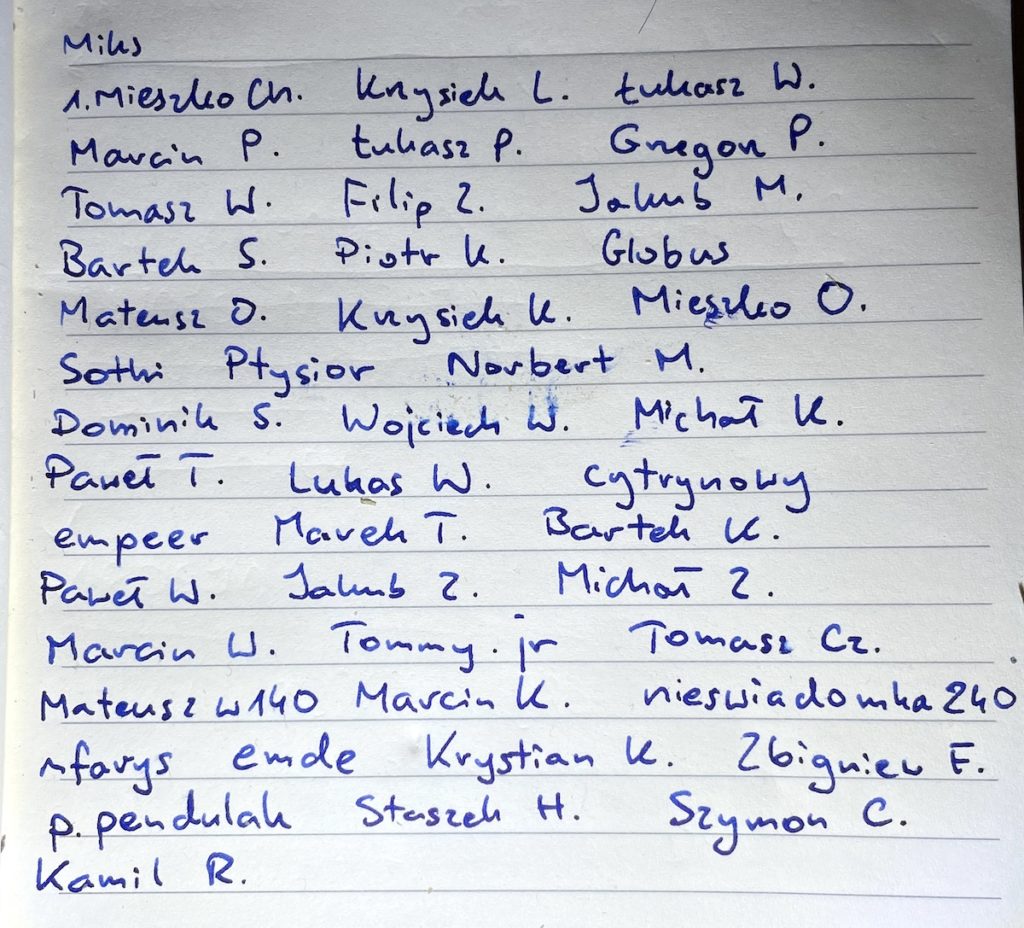 Miks
1. Mieszko Ch. Krzysiek L. Łukasz W.
Marcin P. Łukasz P. Grzegorz P.
Tomasz W. Filip Z. Jakub M.
Bartek S. Piotr K. Globus
Mateusz O. Krzysiek K. Mieszko O.
Sothi Ptysior Norbert M.
Dominik S. Wojciech W. Michał K.
Paweł T. Lukas W. cytrynowy
empeer Marek T. Bartek K.
Paweł W. Jakub Z. Michał Z.
Marcin W. Tommy.jr Tomasz Cz.
Mateusz w140 Marcin K. nieswiadomka240
emde Krystian K. Zbigniew F.
p.pendulak Staszek H. Szymon C.
Kamil R.